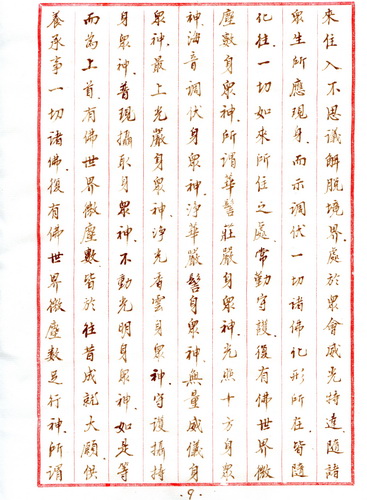 來住入不思議解脫境界.處於眾會威光特達.隨諸
眾生所應現身.而示調伏.一切諸佛化形所在.皆隨
化往.一切如來所住之處.常勤守護.復有佛世界微
塵數身眾神.所謂華髻莊嚴身眾神.光照十方身眾
神.海音調伏身眾神.淨華嚴髻身眾神.無量威儀身
眾神.最上光嚴身眾神.淨光香雲身眾神.守護攝持
身眾神.普現攝取身眾神.不動光明身眾神.如是等
而為上首.有佛世界微塵數.皆於往昔成就大願.供
養承事一切諸佛.復有佛世界微塵數足行神.所謂
·9·